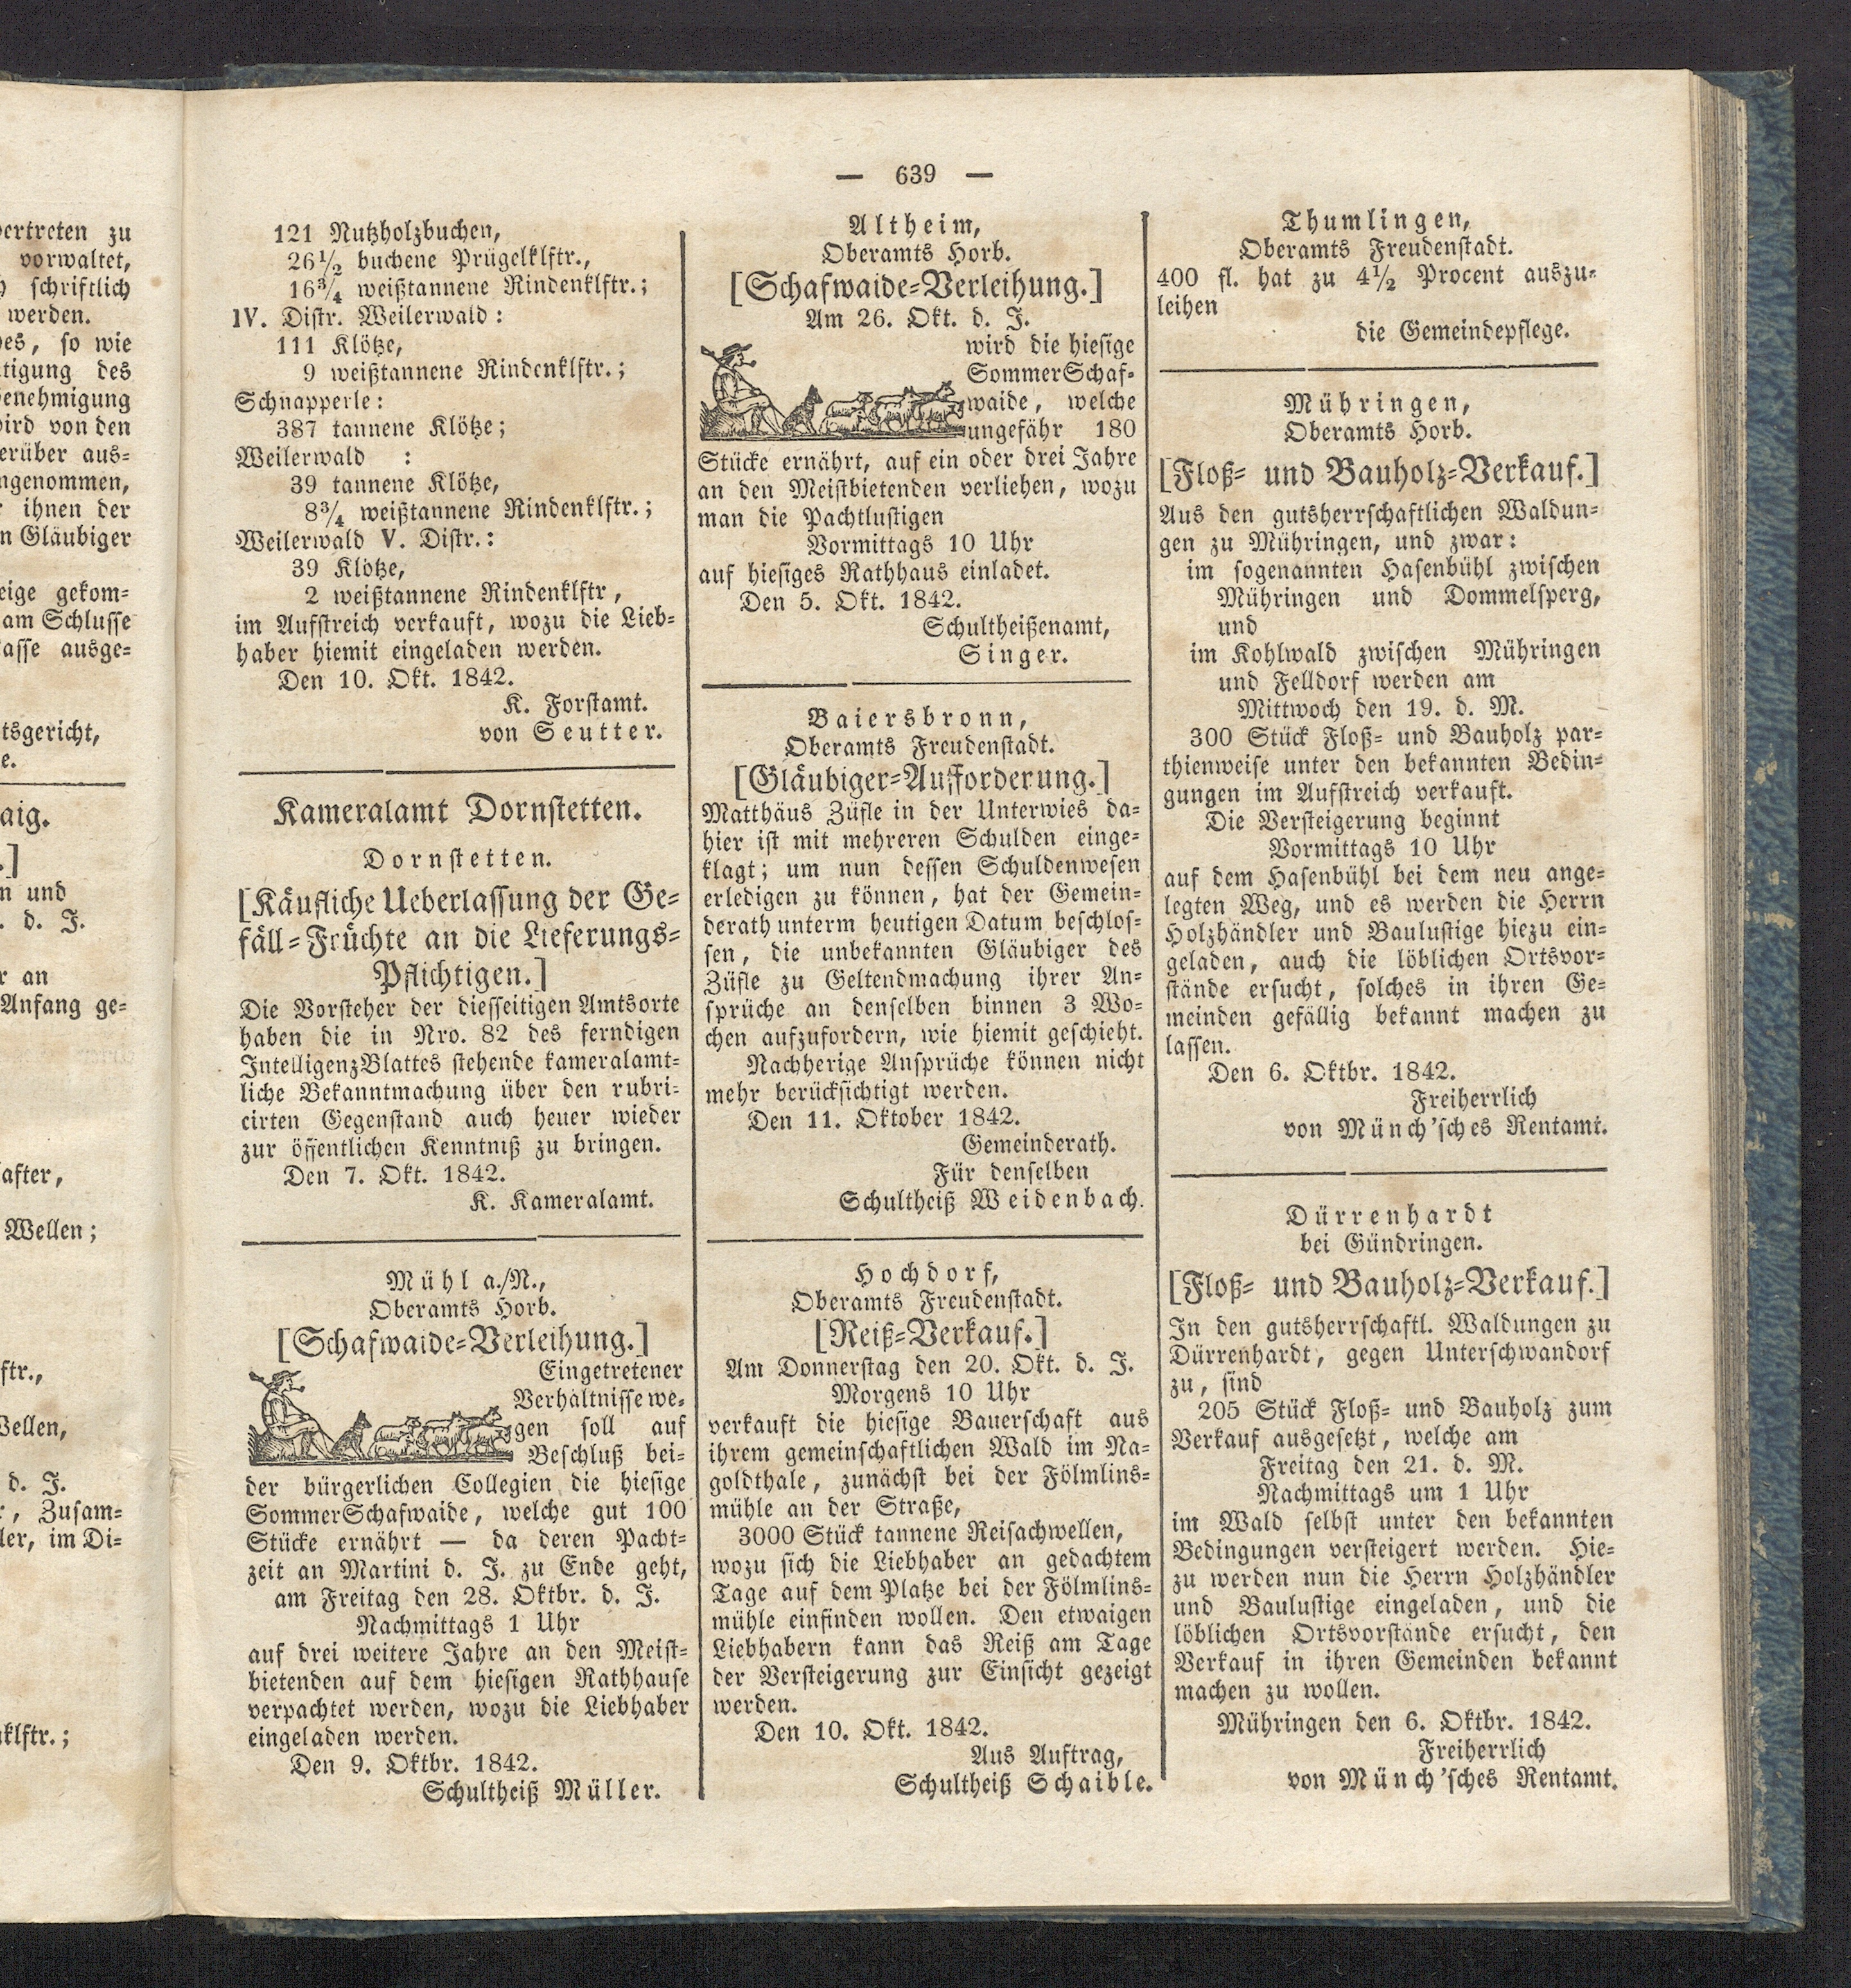 — 639 —
121 Nutzholzbuchen,
26½ buchene Prügelklftr.,
16¾ weißtannene Rindenklftr.;
IV. Distr. Weilerwald:
111 Klötze,
9 weißtannene Rindenklftr.;
Schnapperle:
387 tannene Klötze;
Weilerwald :
39 tannene Klötze,
8¾ weißtannene Rindenklftr.;
Weilerwald V. Distr.:
39 Klötze,
2 weißtannene Rindenklftr,
im Aufstreich verkauft, wozu die Lieb-
haber hiemit eingeladen werden.
Den 10. Okt. 1842.
K. Forstamt.
von Seutter.
Kameralamt Dornstetten.
Dornstetten.
[Käufliche Ueberlassung der Ge-
fäll-Früchte an die Lieferungs-
Pflichtigen.]
Die Vorsteher der diesseitigen Amtsorte
haben die in Nro. 82 des ferndigen
IntelligenzBlattes stehende kameralamt-
liche Bekanntmachung über den rubri-
cirten Gegenstand auch heuer wieder
zur öffentlichen Kenntniß zu bringen.
Den 7. Okt. 1842.
K. Kameralamt.
Mühl a./N.,
Oberamts Horb.
[Schafwaide-Verleihung.]
Eingetretener
Verhältnisse we-
gen soll auf
Beschluß bei-
der bürgerlichen Collegien die hiesige
SommerSchafwaide, welche gut 100
Stücke ernährt — da deren Pacht-
zeit an Martini d. J. zu Ende geht,
am Freitag den 28. Oktbr. d. J.
Nachmittags 1 Uhr
auf drei weitere Jahre an den Meist-
bietenden auf dem hiesigen Rathhause
verpachtet werden, wozu die Liebhaber
eingeladen werden.
Den 9. Oktbr. 1842.
Schultheiß Müller.
Altheim,
Oberamts Horb.
[Schafwaide-Verleihung.]
Am 26. Okt. d. J.
wird die hiesige
SommerSchaf-
waide, welche
ungefähr 180
Stücke ernährt, auf ein oder drei Jahre
an den Meistbietenden verliehen, wozu
man die Pachtlustigen
Vormittags 10 Uhr
auf hiesiges Rathhaus einladet.
Den 5. Okt. 1842.
Schultheißenamt,
Singer.
Baiersbronn,
Oberamts Freudenstadt.
[Gläubiger-Aufforderung.]
Matthäus Züfle in der Unterwies da-
hier ist mit mehreren Schulden einge-
klagt; um nun dessen Schuldenwesen
erledigen zu können, hat der Gemein-
derath unterm heutigen Datum beschlos-
sen, die unbekannten Gläubiger des
Züfle zu Geltendmachung ihrer An-
sprüche an denselben binnen 3 Wo-
chen aufzufordern, wie hiemit geschieht.
Nachherige Ansprüche können nicht
mehr berücksichtigt werden.
Den 11. Oktober 1842.
Gemeinderath.
Für denselben
Schultheiß Weidenbach.
Hochdorf,
Oberamts Freudenstadt.
[Reiß-Verkauf.]
Am Donnerstag den 20. Okt. d. J.
Morgens 10 Uhr
verkauft die hiesige Bauerschaft aus
ihrem gemeinschaftlichen Wald im Na-
goldthale, zunächst bei der Fölmlins-
mühle an der Straße,
3000 Stück tannene Reisachwellen,
wozu sich die Liebhaber an gedachtem
Tage auf dem Platze bei der Fölmlins-
mühle einfinden wollen. Den etwaigen
Liebhabern kann das Reiß am Tage
der Versteigerung zur Einsicht gezeigt
werden.
Den 10. Okt. 1842.
Aus Auftrag,
Schultheiß Schaible.
Thumlingen,
Oberamts Freudenstadt.
400 fl. hat zu 4½ Procent auszu-
leihen
die Gemeindepflege.
Mühringen,
Oberamts Horb.
[Floß- und Bauholz-Verkauf.]
Aus den gutsherrschaftlichen Waldun-
gen zu Mühringen, und zwar:
im sogenannten Hasenbühl zwischen
Mühringen und Dommelsperg,
und
im Kohlwald zwischen Mühringen
und Felldorf werden am
Mittwoch den 19. d. M.
300 Stück Floß- und Bauholz par-
thienweise unter den bekannten Bedin-
gungen im Aufstreich verkauft.
Die Versteigerung beginnt
Vormittags 10 Uhr
auf dem Hasenbühl bei dem neu ange-
legten Weg, und es werden die Herrn
Holzhändler und Baulustige hiezu ein-
geladen, auch die löblichen Ortsvor-
stände ersucht, solches in ihren Ge-
meinden gefällig bekannt machen zu
lassen.
Den 6. Oktbr. 1842.
Freiherrlich
von Münch'sches Rentamt.
Dürrenhardt
bei Gündringen.
[Floß- und Bauholz-Verkauf.]
In den gutsherrschaftl. Waldungen zu
Dürrenhardt, gegen Unterschwandorf
zu, sind
205 Stück Floß- und Bauholz zum
Verkauf ausgesetzt, welche am
Freitag den 21. d. M.
Nachmittags um 1 Uhr
im Wald selbst unter den bekannten
Bedingungen versteigert werden. Hie-
zu werden nun die Herrn Holzhändler
und Baulustige eingeladen, und die
löblichen Ortsvorstände ersucht, den
Verkauf in ihren Gemeinden bekannt
machen zu wollen.
Mühringen den 6. Oktbr. 1842.
Freiherrlich
von Münch'sches Rentamt.